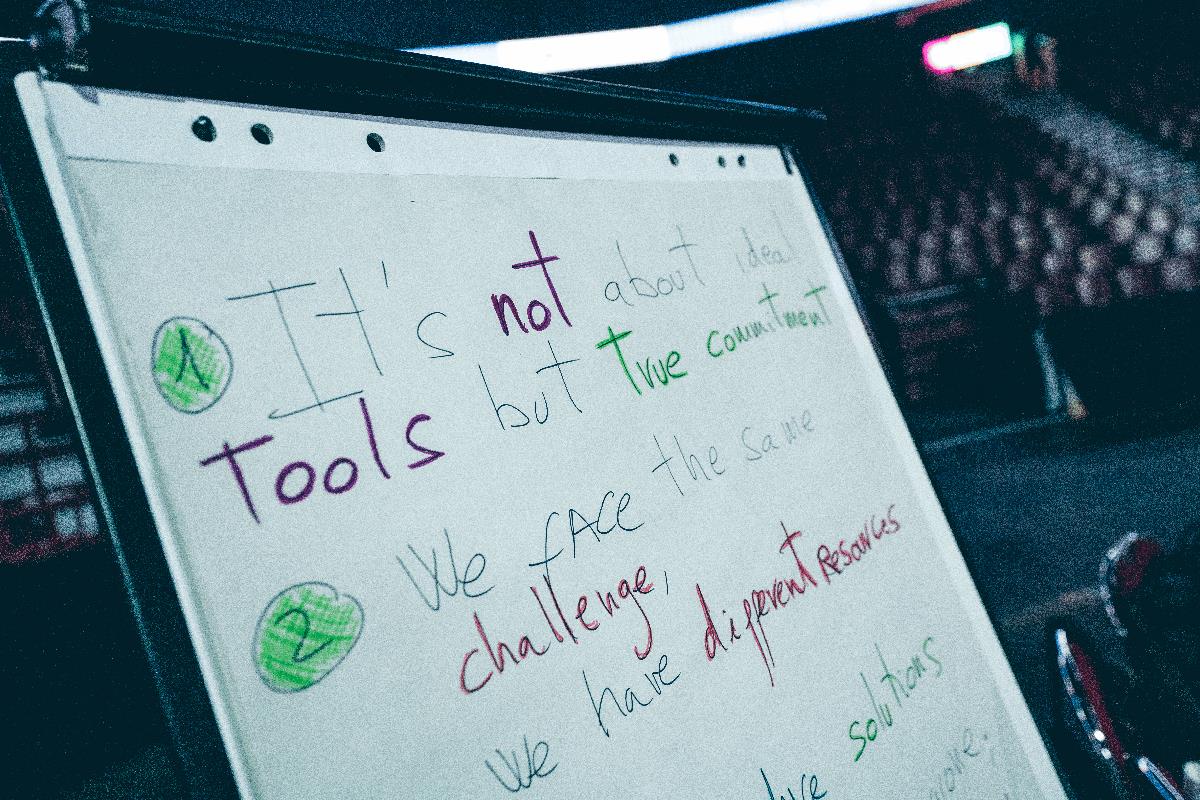 1 It's not about ideal
Tools but True commitment
2 We fACe the same
challenge,
We have different Resources
solutions